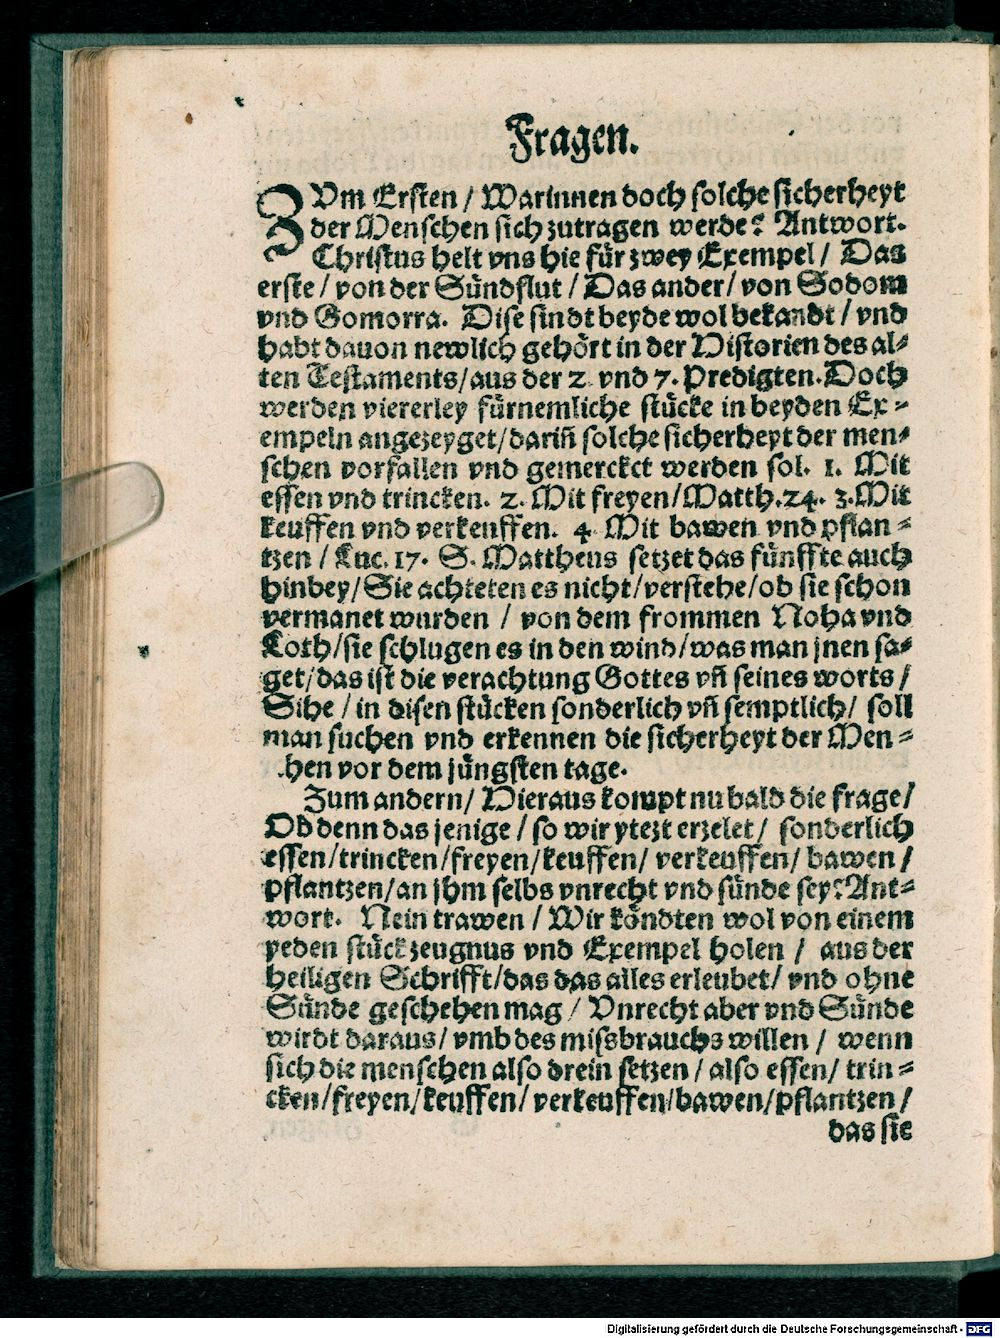 Fragen.
ZVm Ersten / Warinnen doch solche sicherheyt
der Menschen sich zutragen werde? Antwort.
Christus helt vns hie für zwey Exempel / Das
erste / von der Sündflut / Das ander / von Sodom
vnd Gomorra. Dise sindt beyde wol bekandt / vnd
habt dauon newlich gehört in der Historien des al-
ten Testaments/aus der 2. vnd 7. Predigten. Doch
werden viererley fürnemliche stücke in beyden Ex-
empeln angezeyget/darin̄ solche sicherheyt der men-
schen vorfallen vnd gemerckct werden sol. 1. Mit
essen vnd trincken. 2. Mit freyen/Matth.24. 3.Mit
keuffen vnd verkeuffen. 4 Mit bawen vnd pflan-
tzen / Luc. 17. S. Mattheus setzet das fünffte auch
hinbey/Sie achteten es nicht/verstehe/ob sie schon
vermanet wurden / von dem frommen Noha vnd
Loth/sie schlugen es in den wind/was man jnen sa-
get/das ist die verachtung Gottes vn̄ seines worts /
Sihe / in disen stücken sonderlich vn̄ semptlich/ soll
man suchen vnd erkennen die sicherheyt der Men-
.hen vor dem jüngsten tage.
Zum andern/ Hieraus kompt nu bald die frage/
Ob denn das jenige / so wir ytezt erzelet/ sonderlich
essen/trincken/freyen/keuffen/ verkeuffen/ bawen /
pflantzen/an jhm selbs vnrecht vnd sünde sey? Ant-
wort. Nein trawen / Wir köndten wol von einem
yeden stück zeugnus vnd Exempel holen / aus der
heiligen Schrifft/das das alles erleubet/ vnd ohne
Sünde geschehen mag / Vnrecht aber vnd Sünde
wirdt daraus/ vmb des missbrauchs willen / wenn
sich die menschen also drein setzen / also essen/ trin-
cken/freyen/keuffen/ verkeuffen/bawen/pflantzen /
das sie
Digitalisierung gefördert durch die Deutsche Forschungsgemeinschaft - DFG